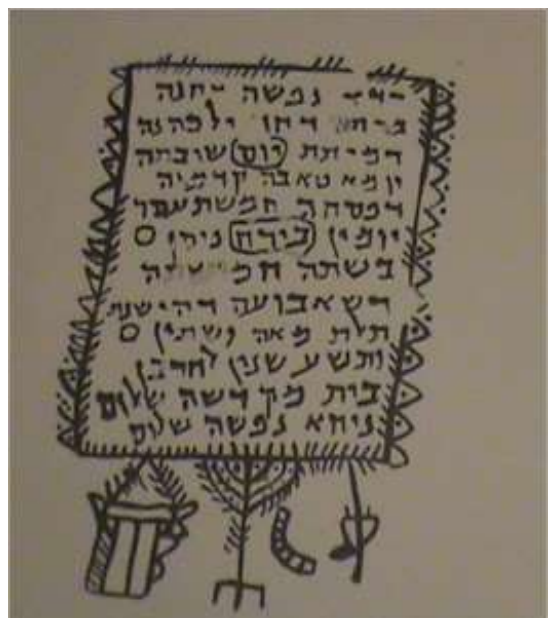 נפשה חנה
דמיתת יום שובתה
יומא טאבה קדמיה
דפסחה חמשת עשר
יומין בירח ניסן
בשתה
דשאבועה דהי שנת
תלת מאה ושתין
ותשע שנין לחרבן
בית מקדשה שלום
ניחא נפשה שלום